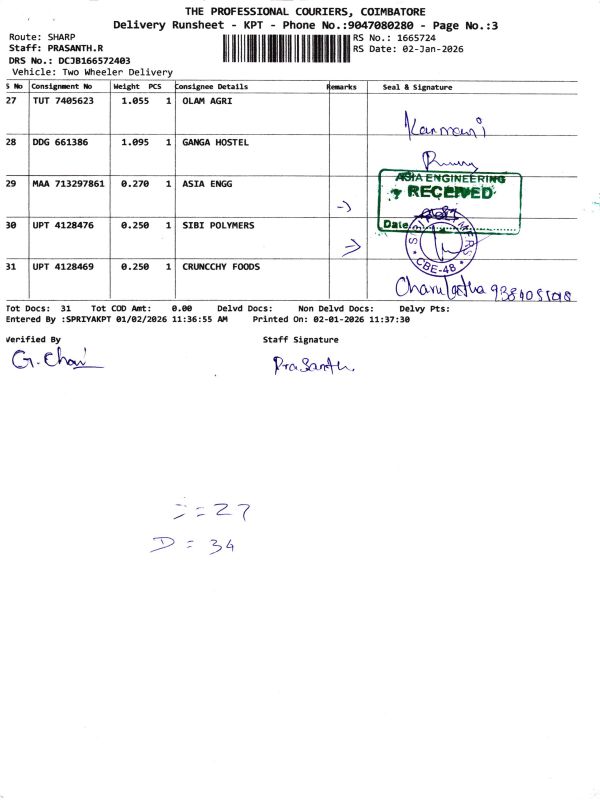 THE PROFESSIONAL COURIERS, COIMBATORE
Delivery Runsheet - KPT - Phone No.:9047080280 - Page No.:3
Route: SHARP
Staff: PRASANTH.R
DRS No.: DCJB166572403
Vehicle: Two Wheeler Delivery
RS No.: 1665724
RS Date: 02-Jan-2026
S No Consignment No Weight PCS Consignee Details Remarks Seal & Signature
27 TUT 7405623 1.055 1 OLAM AGRI
Kanmani
28 DDG 661386 1.095 1 GANGA HOSTEL
29 MAA 713297861 0.270 1 ASIA ENGG
ASIA ENGINEERING
RECEIVED
Date
30 UPT 4128476 0.250 1 SIBI POLYMERS
CBE-48
31 UPT 4128469 0.250 1 CRUNCCHY FOODS
Tot Docs: 31 Tot COD Amt: 0.00 Delvd Docs: Non Delvd Docs: Delvy Pts:
Entered By :SPRIYAKPT 01/02/2026 11:36:55 AM Printed On: 02-01-2026 11:37:30
Verified By Staff Signature
Prasanth
= 27
D = 34